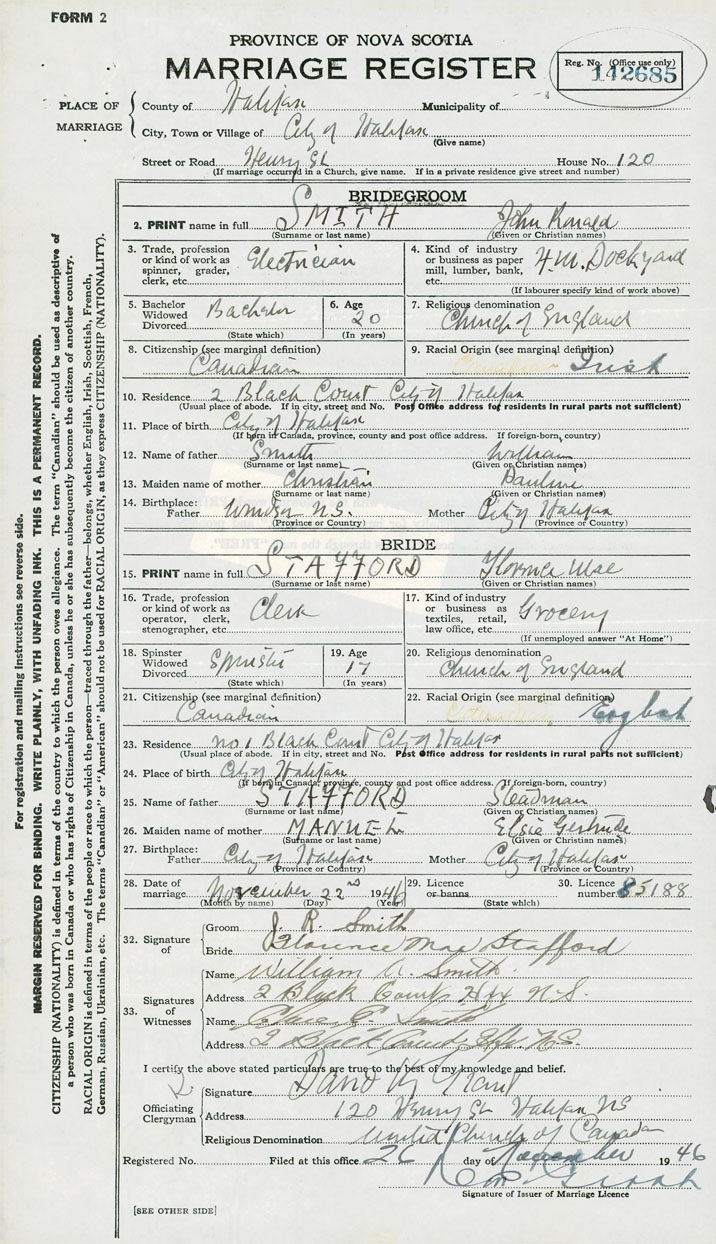 FORM 2
PROVINCE OF NOVA SCOTIA
MARRIAGE REGISTER
Reg. No. (Office use only)
142685
PLACE OF MARRIAGE
County of Halifax Municipality of
City, Town or Village of City of Halifax
(Give name)
Street or Road Henry St. House No. 120
(If marriage occurred in a Church, give name. If in a private residence give street and number)
BRIDEGROOM
2. PRINT name in full SMITH John Ronald
(Surname or last name) (Given or Christian names)
3. Trade, profession or kind of work as spinner, grader, clerk, etc. Electrician
4. Kind of industry or business as paper mill, lumber, bank, etc. H.M. Dockyard
(If labourer specify kind of work above)
5. Bachelor Widowed Divorced Bachelor
(State which)
6. Age 20
(In years)
7. Religious denomination
Church of England
8. Citizenship (see marginal definition)
Canadian
9. Racial Origin (see marginal definition)
Irish
10. Residence 2 Black Court City of Halifax
(Usual place of abode. If in city, street and No. Post Office address for residents in rural parts not sufficient)
11. Place of birth City of Halifax
(If born in Canada, province, county and post office address. If foreign-born, country)
12. Name of father Smith William
(Surname or last name) (Given or Christian names)
13. Maiden name of mother Christian Pauline
(Surname or last name) (Given or Christian names)
14. Birthplace: Father Windsor N.S. Mother City of Halifax
(Province or Country) (Province or Country)
BRIDE
15. PRINT name in full STAFFORD Florence Mae
(Surname or last name) (Given or Christian names)
16. Trade, profession or kind of work as operator, clerk, stenographer, etc. Clerk
17. Kind of industry or business as textiles, retail, law office, etc. Grocery
(If unemployed answer "At Home")
18. Spinster Widowed Divorced Spinster
(State which)
19. Age 17
(In years)
20. Religious denomination
Church of England
21. Citizenship (see marginal definition)
Canadian
22. Racial Origin (see marginal definition)
English
23. Residence No 1 Black Court City of Halifax
(Usual place of abode. If in city, street and No. Post Office address for residents in rural parts not sufficient)
24. Place of birth City of Halifax
(If born in Canada, province, county and post office address. If foreign-born, country)
25. Name of father STAFFORD Steadman
(Surname or last name) (Given or Christian names)
26. Maiden name of mother MANUEL Elsie Gertrude
(Surname or last name) (Given or Christian names)
27. Birthplace: Father City of Halifax Mother City of Halifax
(Province or Country) (Province or Country)
28. Date of marriage November 22nd 1946
(Month by name) (Day) (Year)
29. Licence or banns
(State which)
30. Licence number 85188
32. Signature of
Groom J. R. Smith
Bride Florence Mae Stafford
33. Signatures of Witnesses
Name William A. Smith
Address 2 Black Court Hfx N.S.
Name Smith
Address 2 Black Court Hfx. N.S.
I certify the above stated particulars are true to the best of my knowledge and belief.
Officiating Clergyman
Signature David W. Grant
Address 120 Henry St Halifax NS
Religious Denomination United Church of Canada
Registered No. Filed at this office 26 day of November 1946
Signature of Issuer of Marriage Licence
[SEE OTHER SIDE]
For registration and mailing instructions see reverse side.
MARGIN RESERVED FOR BINDING. WRITE PLAINLY, WITH UNFADING INK. THIS IS A PERMANENT RECORD.
CITIZENSHIP (NATIONALITY) is defined in terms of the country to which the person owes allegiance. The term "Canadian" should be used as descriptive of
a person who was born in Canada or who has rights of Citizenship in Canada, unless he or she has subsequently become the citizen of another country.
RACIAL ORIGIN is defined in terms of the people or race to which the person—traced through the father—belongs, whether English, Irish, Scottish, French,
German, Russian, Ukrainian, etc. The terms "Canadian" or "American" should not be used for RACIAL ORIGIN, as they express CITIZENSHIP (NATIONALITY).